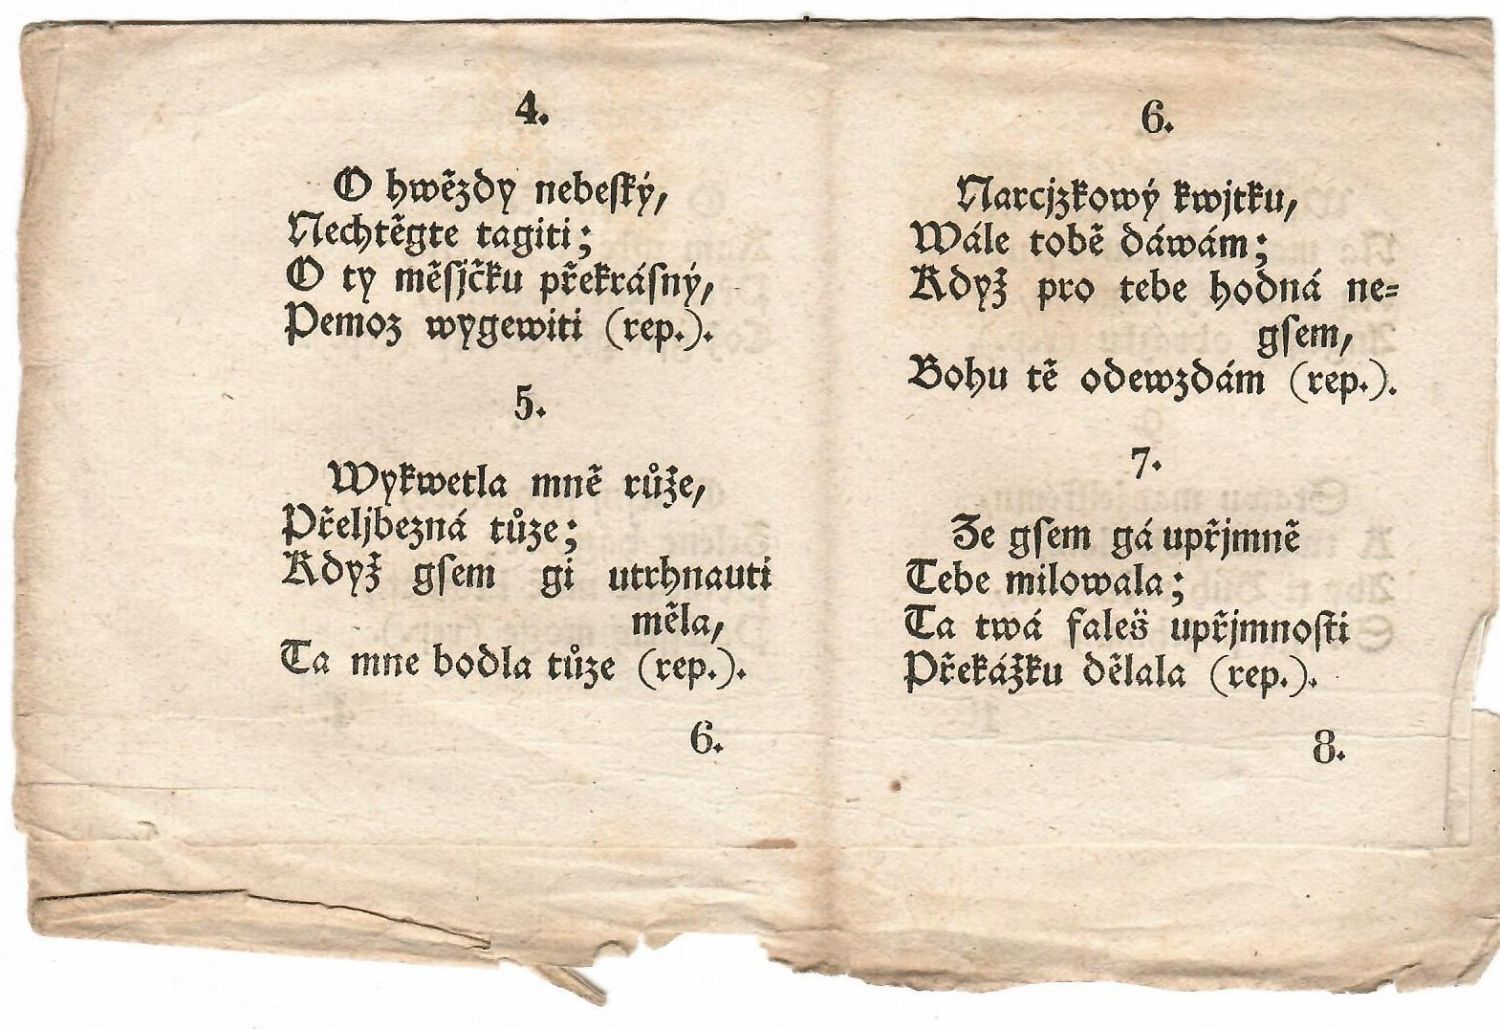 4.
O hwězdy nebeský,
Nechtěgte tagiti;
O ty měsjčku překrásný,
Pemoz wygewiti (rep.).
5.
Wykwetla mně růže,
Přeljbezná tůze;
Když gsem gi utrhnauti
měla,
Ta mne bodla tůze (rep.).
6.
6.
Narcjzkowý kwjtku,
Wále tobě dáwám;
Když pro tebe hodná ne=
gsem,
Bohu tě odewzdám (rep.).
7.
Že gsem gá upřjmně
Tebe milowala;
Ta twá faleš upřjmnosti
Překážku dělala (rep.).
8.